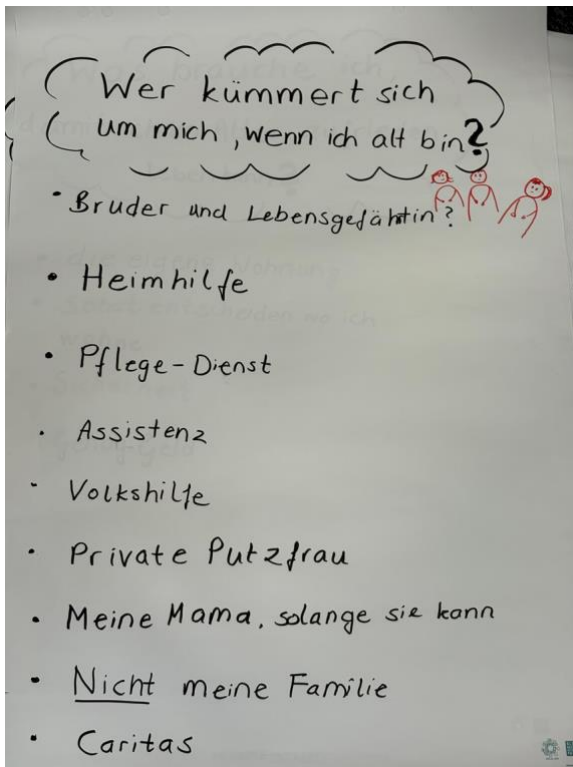 Wer kümmert sich
um mich, wenn ich alt bin?
• Bruder und Lebensgefährtin?
• Heimhilfe
• Pflege-Dienst
• Assistenz
• Volkshilfe
• Private Putzfrau
• Meine Mama, solange sie kann
• Nicht meine Familie
• Caritas